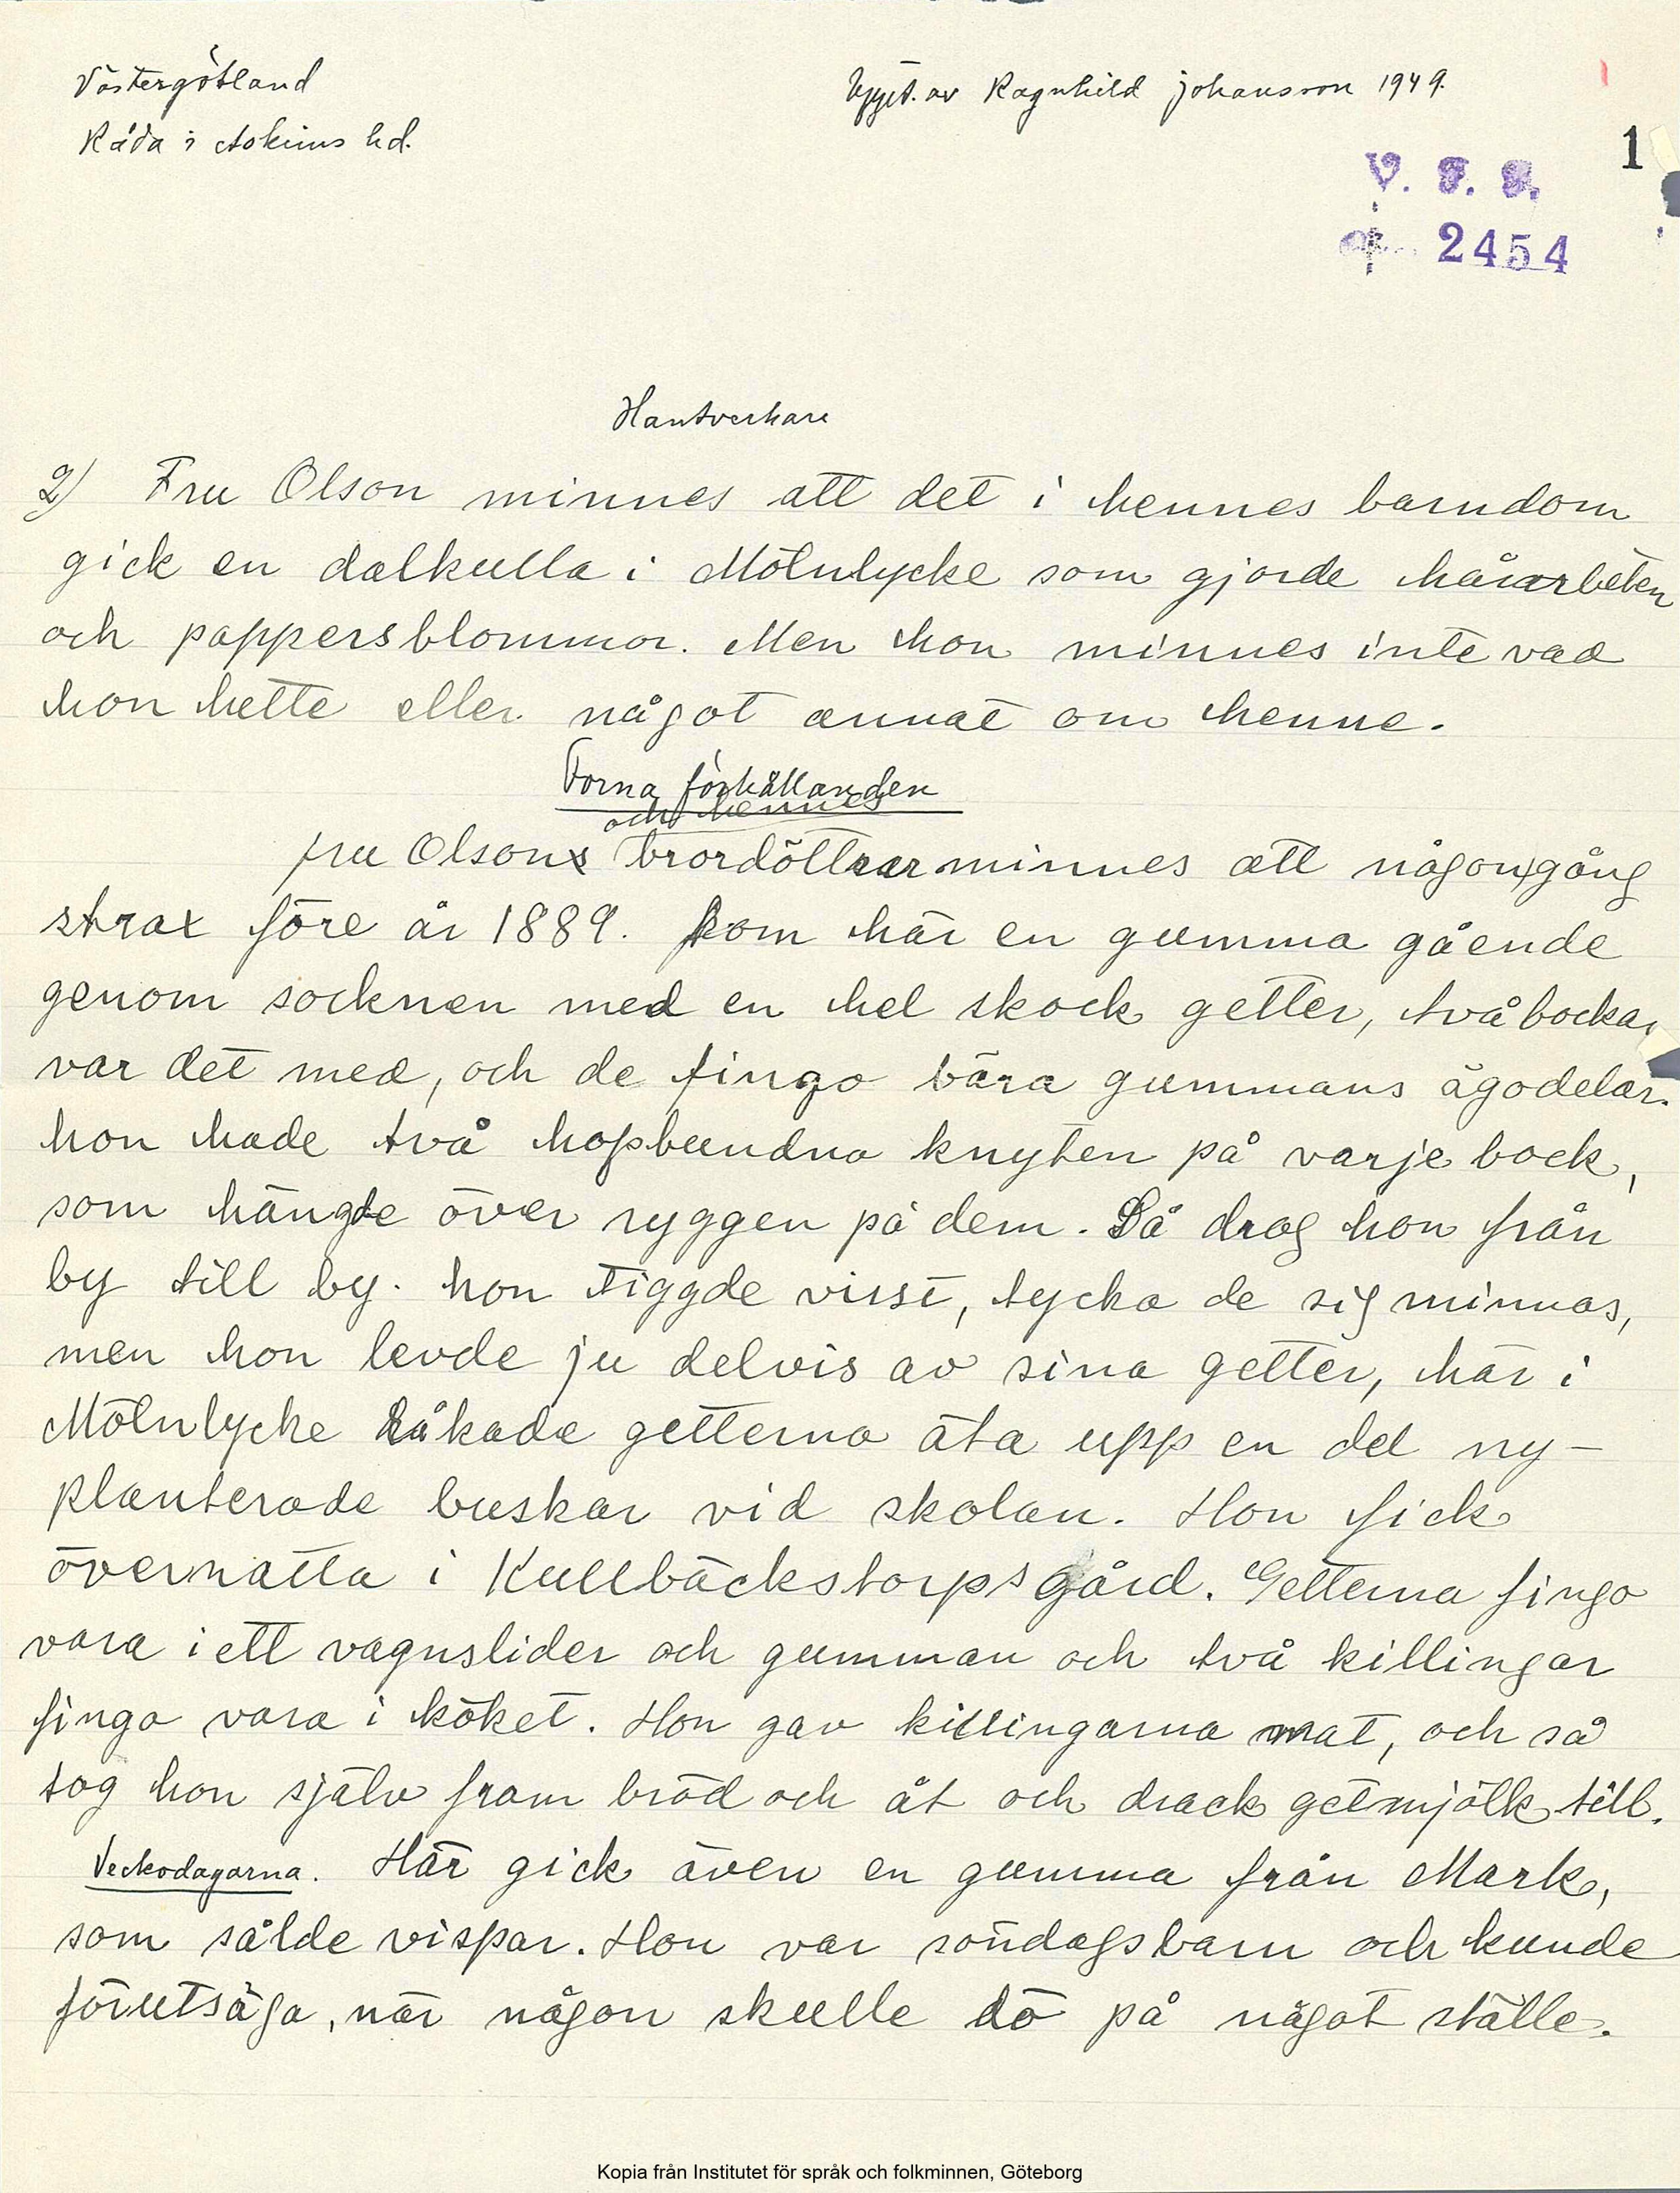 Västergötland
Råda i Askims hd.
Uppt. av Ragnhild Johansson 1949.
1
V. F. F.
2454
Hantverkare
2) Fru Olson minnes att det i hennes barndom
gick en dalkulla i Mölnlycke som gjorde hårarbeten
och pappersblommor. Men hon minnes inte vad
hon hette eller något annat om henne.
Forna förhållanden
och hennes
fru Olsons brordöttrar minnes att någon gång
strax före år 1889. kom här en gumma gående
genom socknen med en hel skock getter, två bockar
var det med, och de fingo bära gummans ägodelar.
hon hade två hopbundna knyten på varje bock,
som hängde över ryggen på dem. Så drog hon från
by till by. hon tiggde visst, tycka de sig minnas,
men hon levde ju delvis av sina getter, här i
Mölnlycke råkade getterna äta upp en del ny-
planterade buskar vid skolan. Hon fick
övernatta i Kullbäckstorps gård. Getterna fingo
vara i ett vagnslider och gumman och två killingar
fingo vara i köket. Hon gav killingarna mat, och så
tog hon själv fram bröd och åt och drack getmjölk till.
Veckodagarna. Här gick även en gumma från Mark,
som sålde vispar. Hon var söndagsbarn och kunde
förutsäga, när någon skulle dö på något ställe.
Kopia från Institutet för språk och folkminnen, Göteborg